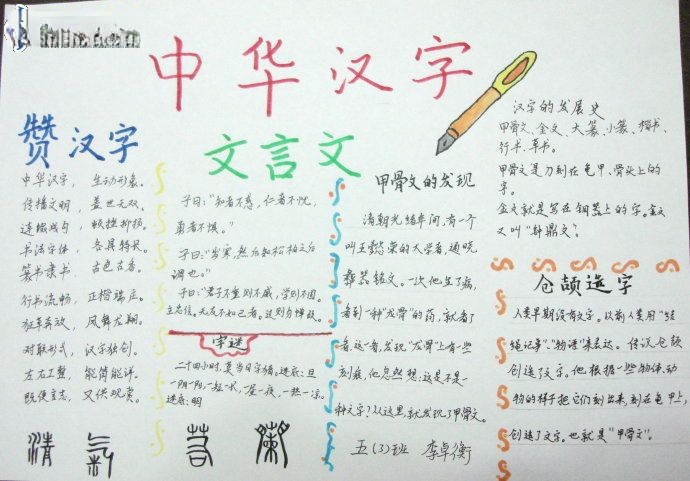 中华汉字
赞汉字
中华汉字，生动形象。
传播文明，盖世无双。
连缀成句，顿挫抑扬。
书法字体，各具特长。
篆书隶书，古色古香。
行书流畅，正楷端庄。
狂草奔放，凤舞龙翔。
对联形式，汉字独创。
左右工整，能简能详。
既便言志，又供观赏。
文言文
子曰："知者不惑，仁者不忧，
勇者不惧。"
子曰："岁寒，然后知松柏之后
凋也。"
子曰："君子不重则不威，学则不固。
主忠信。无友不如己者。过则勿惮改。
字谜
二十四小时，莫当日字猜，谜底：旦
一阴一阳，一短一长，一昼一夜，一热一凉。
谜底：明
甲骨文的发现
清朝光绪年间，有一个
叫王懿荣的大学者，通晓
彝器铭文。一次他生了病，
看到一种"龙骨"的药，就看了
看，这一看，发现"龙骨"上有一些
刻痕，他忽然想：这是不是一
种文字？从这里，就发现了甲骨文。
五(3)班 李卓衡
汉字的发展史
甲骨文、金文、大篆、小篆、楷书、
行书、草书。
甲骨文是刀刻在龟甲、骨头上的
字。
金文就是写在铜器上的字。金文
又叫"钟鼎文"。
仓颉造字
人类早期没有文字。以前人类用"结
绳记事"、"物语"来表达。传说仓颉
创造了文字。他根据一些物体、动
物的样子把它们刻出来，刻在龟甲上，
创造了文字。也就是"甲骨文"。
清 氣